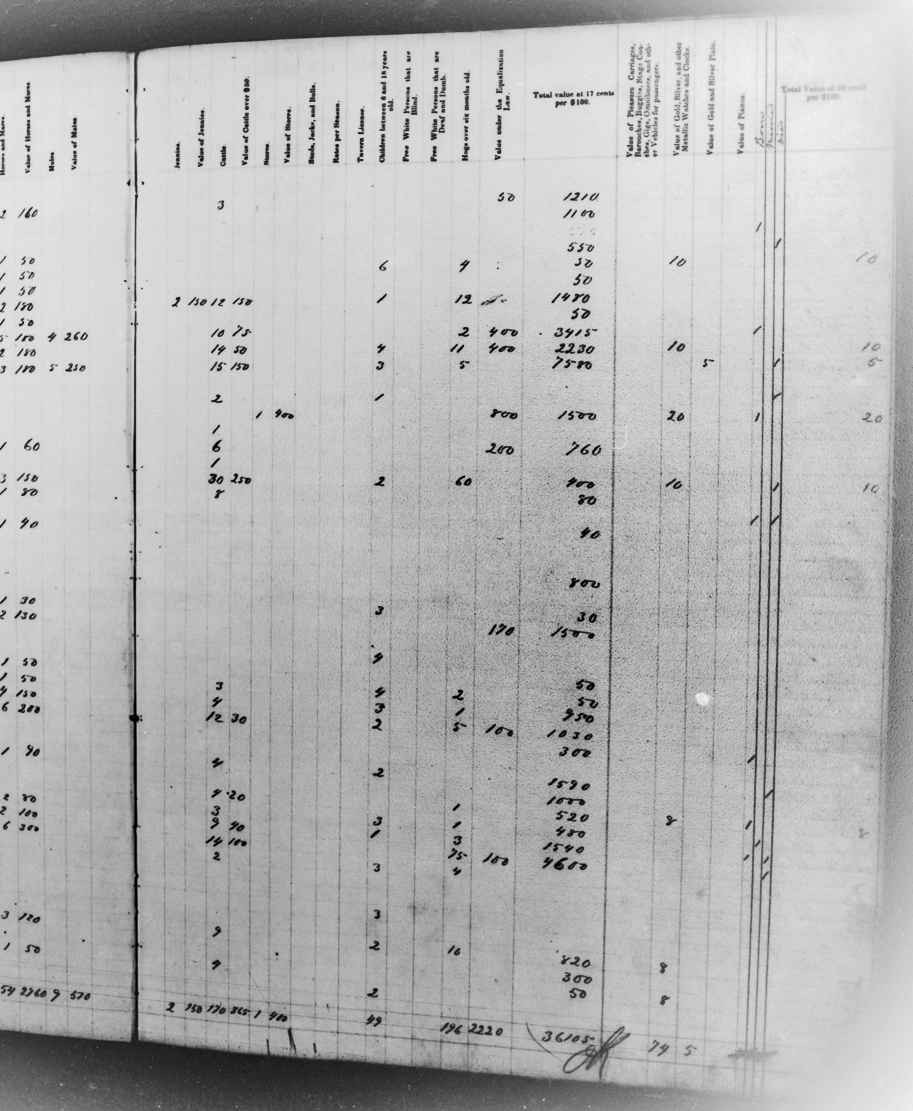 Horses and Mares.
Value of Horses and Mares
Mules
Value of Mules
Jennies.
Value of Jennies.
Cattle
Value of Cattle over $50.
Stores.
Value of Stores.
Studs, Jacks, and Bulls.
Rates per Season.
Tavern License.
Children between 6 and 18 years old.
Free White Persons that are Blind.
Free White Persons that are Deaf and Dumb.
Hogs over six months old.
Value under the Equalization Law.
Total Value at 17 cents per $100.
Value of Pleasure Carriages, Barouches, Buggies, Stage Coaches, Gigs, Omnibuses, and other Vehicles for passengers.
Value of Gold, Silver, and other Metallic Watches and Clocks.
Value of Gold and Silver Plate.
Value of Pianos.
Total Value at 30 cents per $100.
50 1210
2 160 3 1100
550
1 50 6 4 50 10 10
1 50 50
1 50
2 180 2 150 12 150 1 12 1480
1 50 50
5 100 4 260 10 75 2 400 3415
2 180 14 50 4 11 400 2230 10 10
3 180 5 250 15 150 3 5 7580 5 5
2 1
1 400 800 1500 20 20
1
1 60 6 200 760
1
3 150 30 250 2 60 400 10 10
1 80 8 80
1 40 40
800
1 30 30
2 130 3 170 1500
1 50 4
1 50 3 4 2 50
4 150 4 3 1 50
6 200 12 30 2 5 100 950
1030
1 40 300
4 2
1590
2 80 4 20 1000
2 100 3 1 520 8 8
6 300 9 40 3 1 480
14 100 1 3 1540
2 75 100 4600
3 4
3 120 3
9
1 50 2 16
4 820 8
300
2 50 8
54 2760 9 570 2 150 170 865 1 400 49 196 2220 36105 74 5